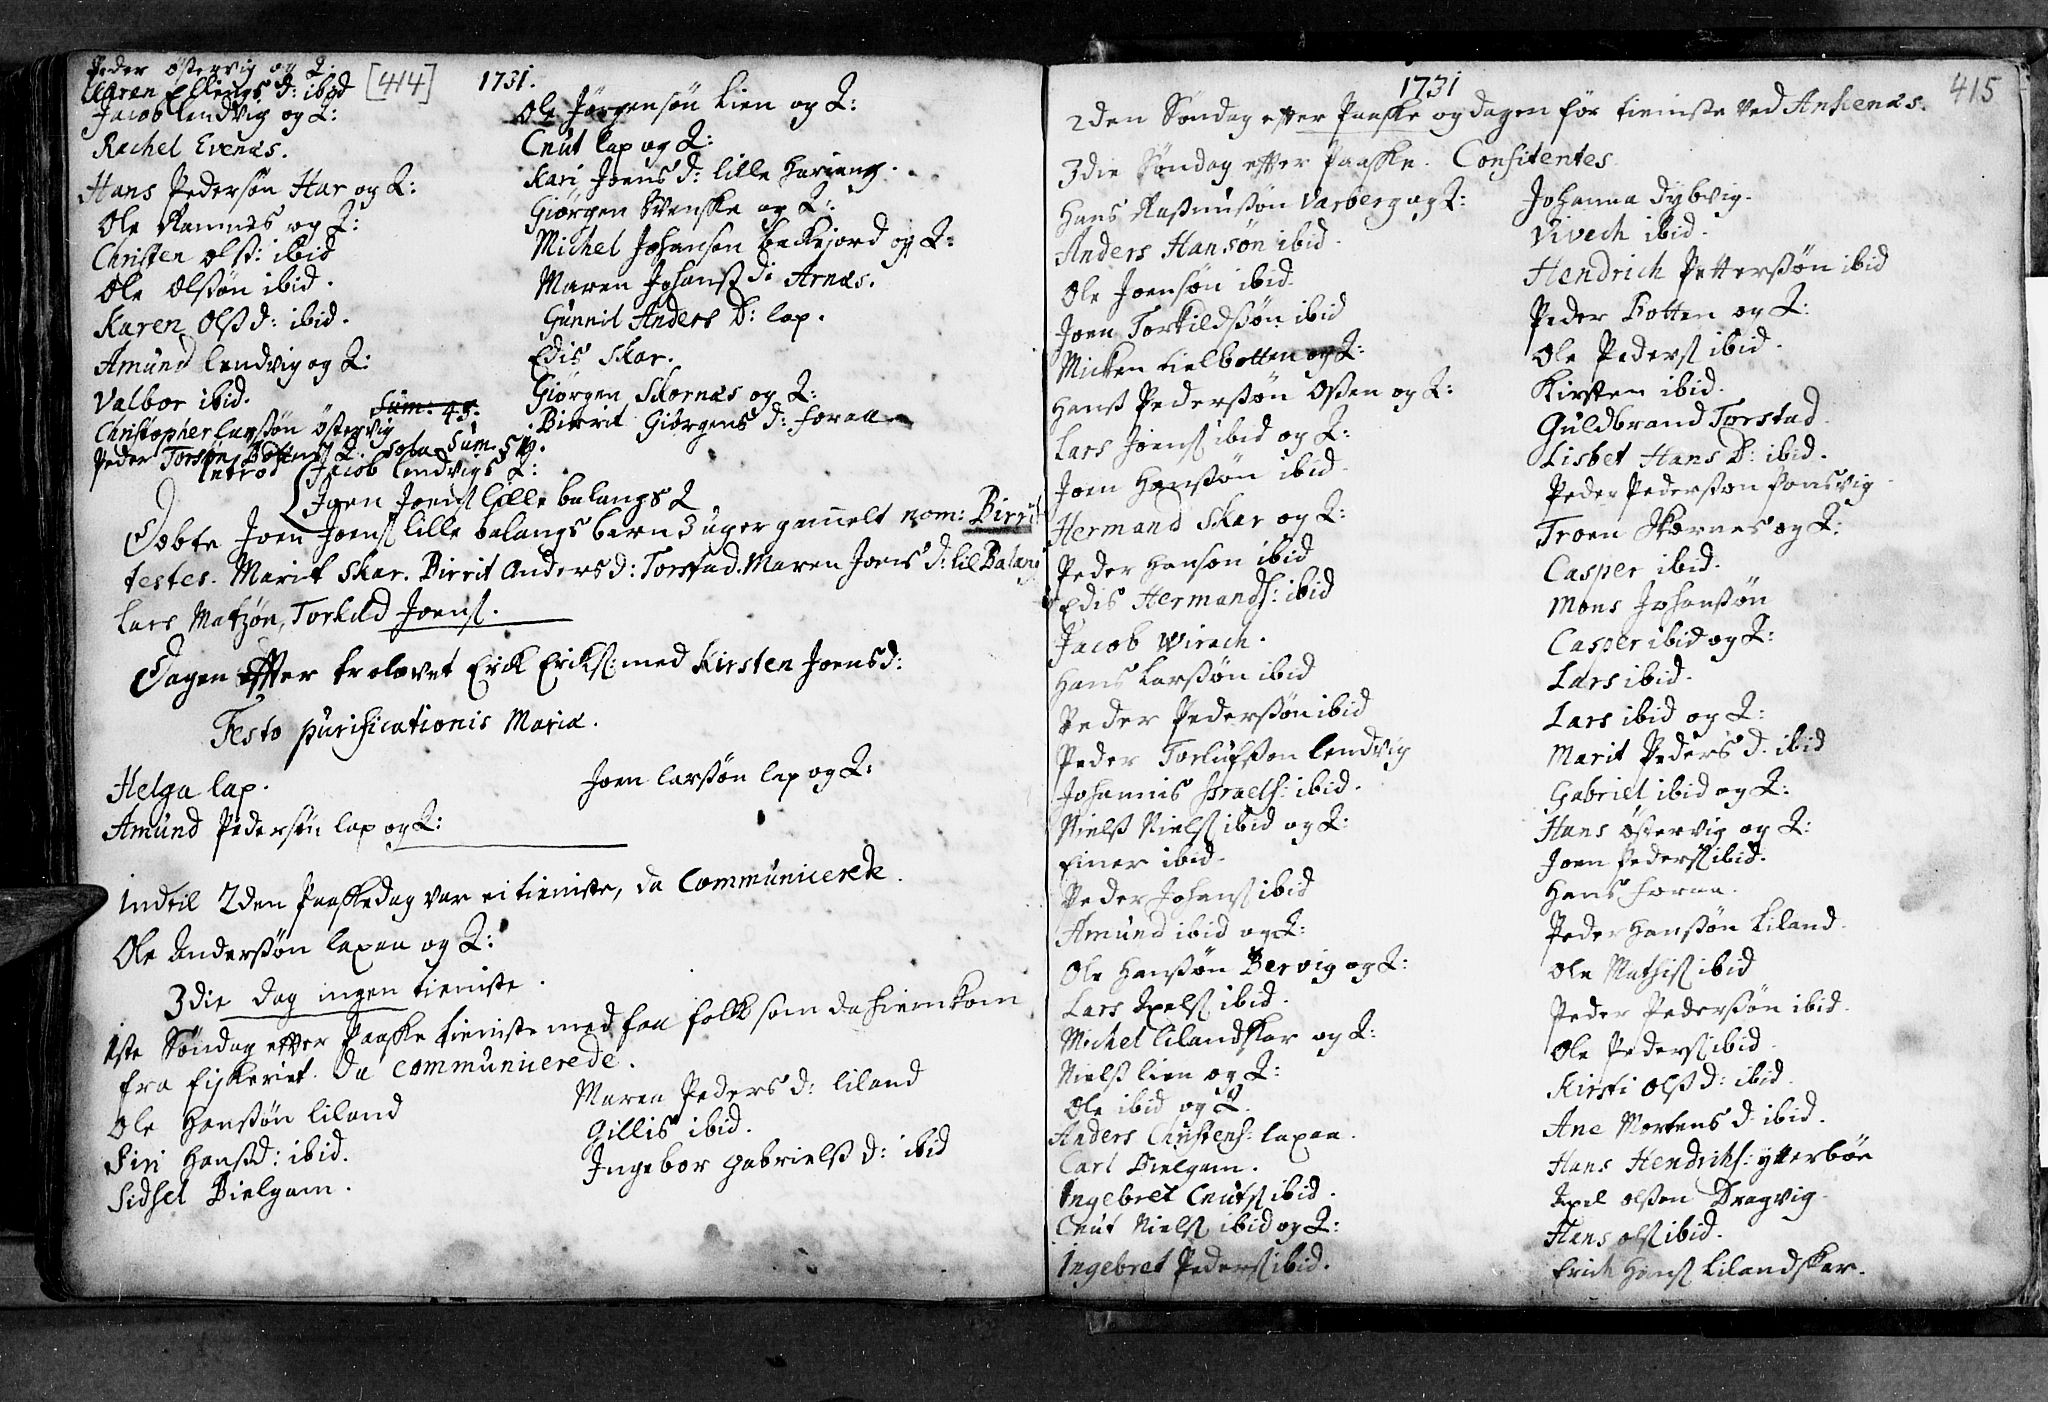 [414] 1731.
Peder Østervig og Q.
Karen Ellings d: ibid
Jacob Lendvig og Q:
Rachel Evenæs.
Hans Pedersøn Har og Q:
Ole Ramnes og Q:
Christen Olss: ibid
Ole Olssøn ibid.
Karen Olss d: ibid.
Amund Lendvig og Q:
Valbor ibid.
Sum: 45.
Christopher Larssøn Østervig
Peder Torsøn Q. Sum. 519.
Ole Jørgensøn Lien og Q:
Cnut lap og Q:
Kari Joens d: lille Hariang.
Giørgen Svenske og Q:
Michel Johansøn Bekkejord og Q:
Maren Johanss d: Arnæs.
Gunnil Anders D: lap.
Edis Skar.
Giørgen Skornæs og Q:
Birrit Giørgens d: Foraa
Introd Jacob Lendvigs Q:
Joen Joens lille balangs Q
Døbte Joen Joens lille balangs barn 3 uger gamelt nom: Birrit
testes. Marit Skar. Birrit Anders d: Torstad. Maren Joens d: lil Balang
Lars Matzøn, Torkild Joens.
Dagen effter trolovet Erick Ericks: med Kirsten Joens d:
Festo purificationis Mariæ.
Helga lap.
Amund Pedersøn lap og Q:
Joen Larssøn lap og Q:
Indtil 2den Paaskedag var ei tieniste, da Communicerede.
Ole Anderssøn Laxaa og Q:
3die dag ingen tieniste.
1ste Søndag effter Paaske tieniste med faa folk som da hiemkom
fra fiskeriet. Da communicerede.
Ole Hanssøn Liland
Siri Hanss d: ibid.
Sidsel Bielgam.
Maren Peders d: Liland
Gillis ibid.
Ingebor Gabrielss d: ibid
1731 415
2den Søndag effter Paaske og dagen før tieniste ved Ankenæs.
3die Søndag effter Paaske. Confitentes.
Hans Rasmussøn Varberg og Q:
Anders Hansøn ibid.
Ole Joensøn ibid.
Joen Torkildssøn ibid
Micken Lielbotten og Q:
Hanss Pederssøn Ossen og Q:
Lars Joens ibid og Q:
Joen Hanssøn ibid.
Hermand Skar og Q:
Peder Hansøn ibid
Edis Hermands: ibid
Jacob Wirach.
Hans Larssøn ibid
Peder Pederssøn ibid
Peder Torlufssøn Lendvig
Johannis Israels: ibid.
Nielss Niels ibid og Q:
Einer ibid.
Peder Johans ibid
Amund ibid og Q:
Ole Hanssøn Bervig og Q:
Lars Axels ibid.
Michel Lilandskar og Q:
Nielss Lien og Q:
Ole ibid og Q.
Anders Christens: Laxaa.
Carl Bielgam.
Ingebret Cnuts ibid.
Cnut Niels ibid og Q:
Ingebret Peders ibid.
Johanna Dybvig.
Vivech ibid.
Hendrich Petterssøn ibid
Peder Botten og Q:
Ole Peders ibid.
Kirsten ibid.
Guldbrand Torstad.
Lisbet Hans D: ibid.
Peder Pederssøn Sonsvig
Troen Skornes og Q:
Casper ibid.
Mons Johanssøn
Casper ibid og Q:
Lars ibid.
Lars ibid og Q:
Marit Peders d. ibid
Gabriel ibid og Q:
Hans Østervig og Q:
Joen Peders ibid.
Hans Foraa.
Peder Hanssøn Liland.
Ole Mathis ibid
Peder Pederssøn ibid.
Ole Peders ibid.
Kirsti Olss d: ibid.
Ane Mortens d. ibid.
Hans Hendriks: ytterbøe
Axel Olssen Dragvig.
Hans Ols ibid.
Erich Hans Lilandskar.